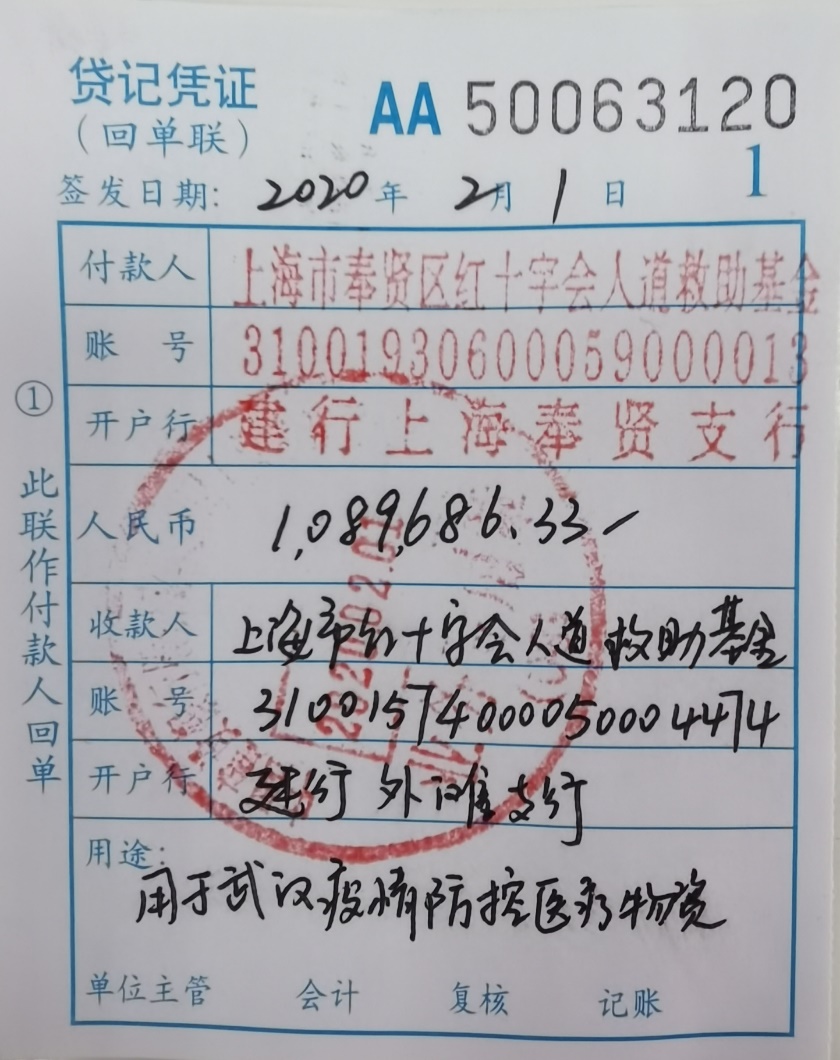 贷记凭证
AA 50063120
（回单联）
签发日期: 2020年2月1日
1
付款人 上海市奉贤区红十字会人道救助基金
账号 31001930600059000013
开户行 建行上海奉贤支行
人民币 1,089,686.33
收款人 上海市红十字会人道救助基金
账号 31001574000050004474
开户行 建行外滩支行
用途:
用于武汉疫情防控医疗物资
单位主管 会计 复核 记账
① 此联作付款人回单
2020.02.01